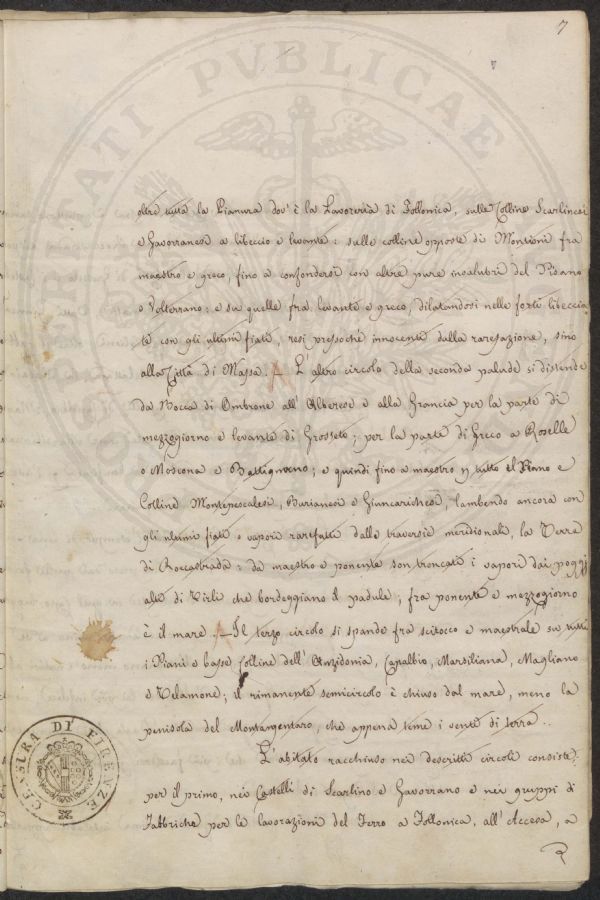 7
oltre tutta la Pianura dov' è la Lavoreria di Follonica, sulle Colline Scarlinesi
e Gavorranesi a libeccio e levante: sulle colline opposte di Montioni fra
maestro e greco, fino a confondersi con altre pure insalubri del Pisano
o Volterrano: e su quelle fra levante e greco, dilatandosi nelle forti libeccia
te con gli ultimi fiati, resi pressochè innocenti dalla rarefazione, sino
alla Città di Massa. L' altro circolo della seconda palude si distende
da Bocca di Ombrone all' Alberese e alla Grancia per la parte di
mezzogiorno e levante di Grosseto; per la parte di Greco a Roselle
o Moscona e Battignano; e quindi fino a maestro p tutto el Piano e
Colline Montepescalesi, Burianesi e Giuncarichesi, lambendo ancora con
gli ultimi fiati o vapori rarefatti dalle traversie meridionali, la Terra
di Roccastrada: da maestro e ponente son troncati i vapori dai poggj
alti di Tirli che bordeggiano il padule; fra ponente e mezzogiorno
è il mare. Il terzo circolo si spande fra scirocco e maestrale su tutti
i Piani e basse Colline dell' Ansidonia, Capalbio, Marsiliana, Magliano
e Telamone; il rimanente semicircolo è chiuso dal mare, meno la
penisola del Montargentaro, che appena teme i venti di terra..
L' abitato racchiuso nei descritti circoli consiste,
per il primo, nei Castelli di Scarlino e Gavorrano e nei gruppi di
Fabbriche per le lavorazioni del Ferro a Follonica, all' Accesa, a
CENSURA DI FIRENZE
PROSPERITATI PVBLICAE